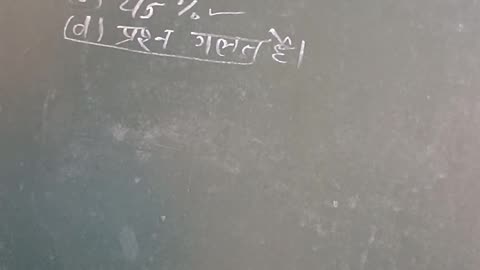 45 %
(d) प्रश्न गलत है।